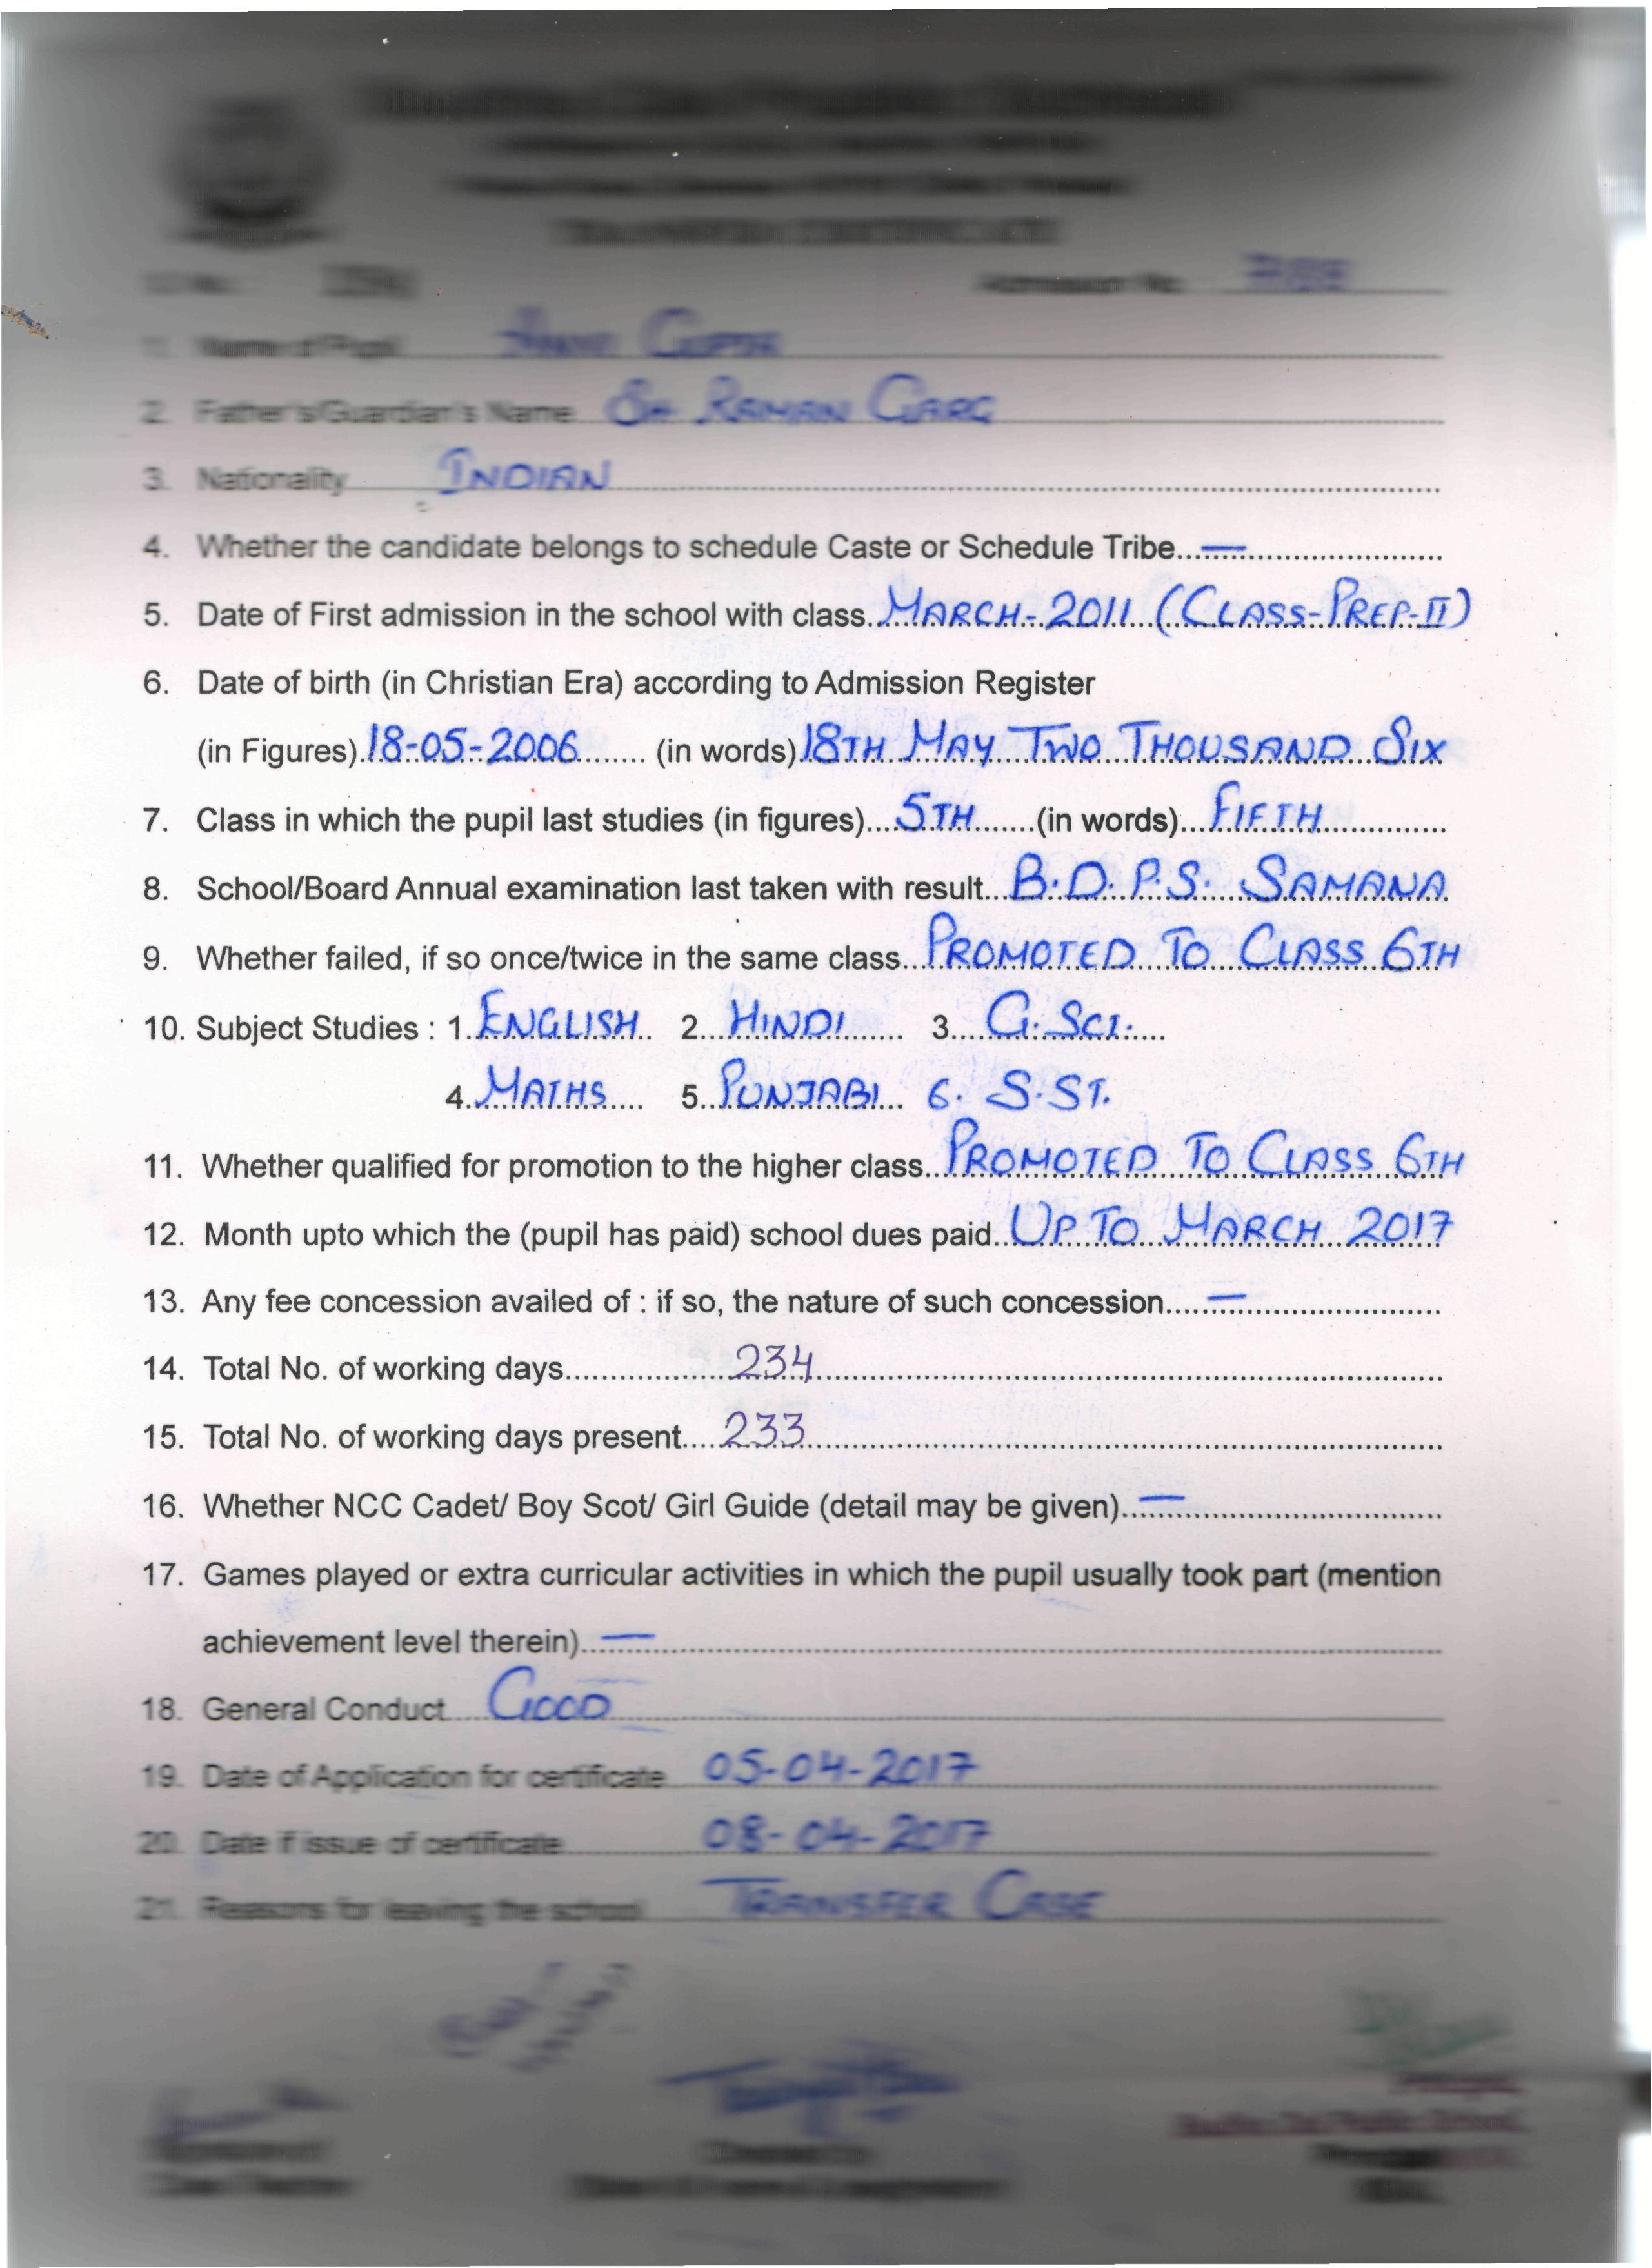 TRANSFER CERTIFICATE
Admission No.
1. Name of Pupil Gupta
2. Father's/Guardian's Name Sh Raman Garg
3. Nationality Indian
4. Whether the candidate belongs to schedule Caste or Schedule Tribe...—
5. Date of First admission in the school with class March-2011 (Class-Prep-II)
6. Date of birth (in Christian Era) according to Admission Register
(in Figures) 18-05-2006 (in words) 18th May Two Thousand Six
7. Class in which the pupil last studies (in figures) 5th (in words) Fifth
8. School/Board Annual examination last taken with result B.D.P.S. Samana
9. Whether failed, if so once/twice in the same class Promoted To Class 6th
10. Subject Studies : 1. English 2. Hindi 3. G.Sci.
4. Maths 5. Punjabi 6. S.St.
11. Whether qualified for promotion to the higher class Promoted To Class 6th
12. Month upto which the (pupil has paid) school dues paid Up To March 2017
13. Any fee concession availed of : if so, the nature of such concession —
14. Total No. of working days 234
15. Total No. of working days present 233
16. Whether NCC Cadet/ Boy Scot/ Girl Guide (detail may be given) —
17. Games played or extra curricular activities in which the pupil usually took part (mention
achievement level therein) —
18. General Conduct Good
19. Date of Application for certificate 05-04-2017
20. Date if issue of certificate 08-04-2017
21. Reasons for leaving the school Transfer Case